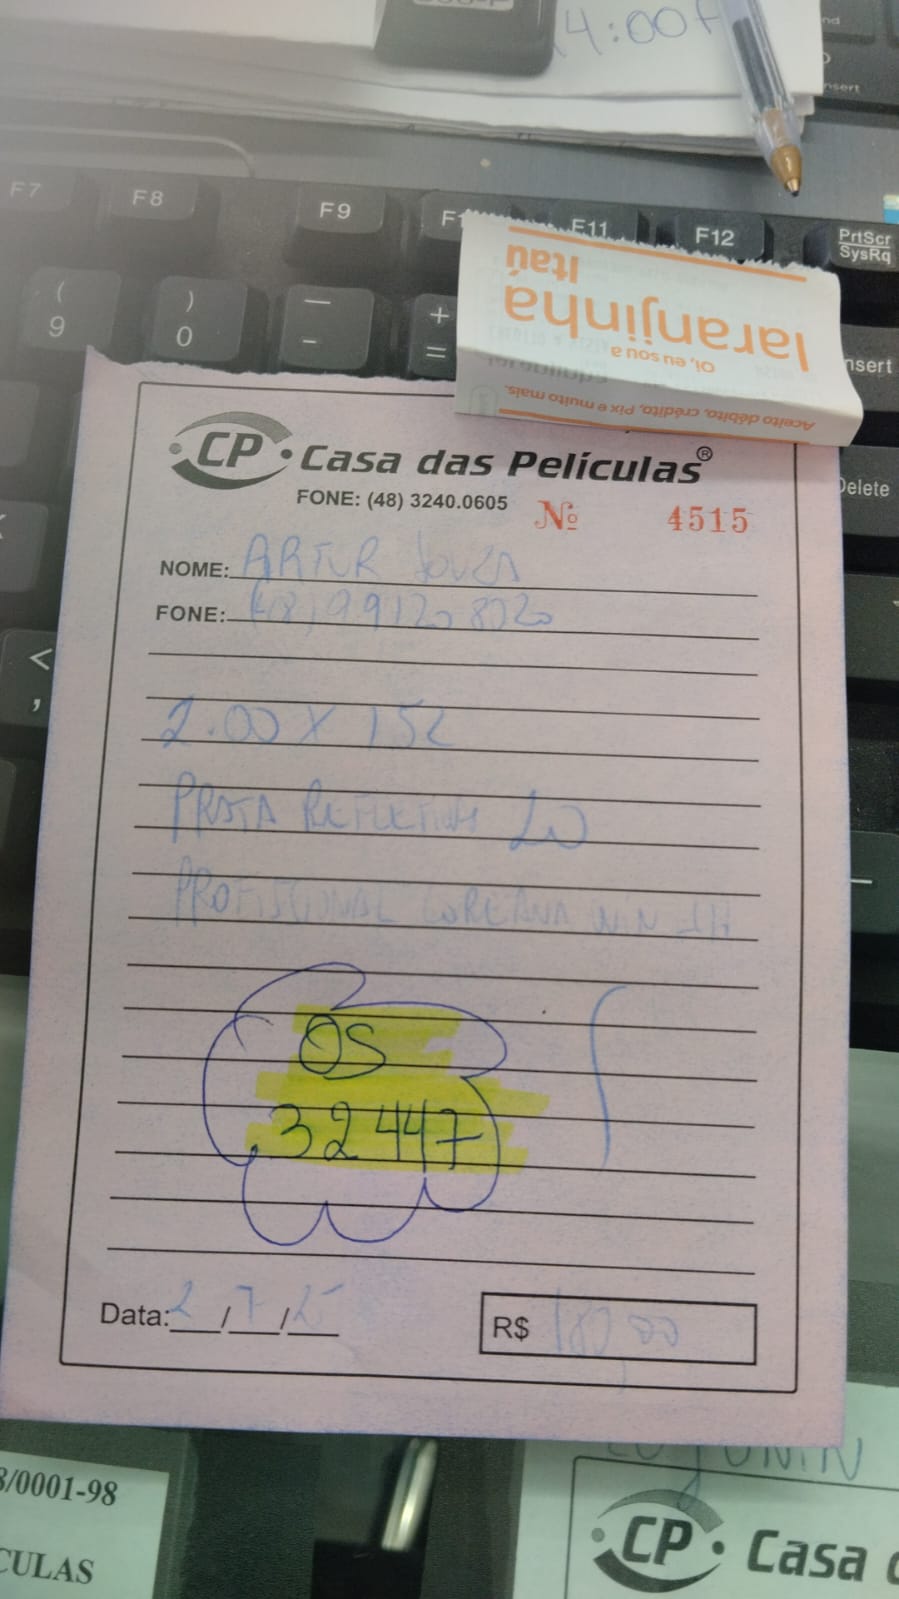 4:00
nd
insert
F7
F8
F9
F11
F12
PrtScr
SysRq
(
9
)
0
—
-
+
=
nsert
Delete
<
,
Itaú
laranjinha
Oi, eu sou a
Aceito débito, crédito, Pix e muito mais.
CP Casa das Películas®
FONE: (48) 3240.0605 Nº 4515
NOME: ARTUR SOUZA
FONE: (48) 99120 8020
2.00 X 152
PRATA REFLETIVA 20
PROFISSIONAL COREANA WIN
OS
32447
Data: 2/7/25 R$
8/0001-98
CULAS
CP Casa